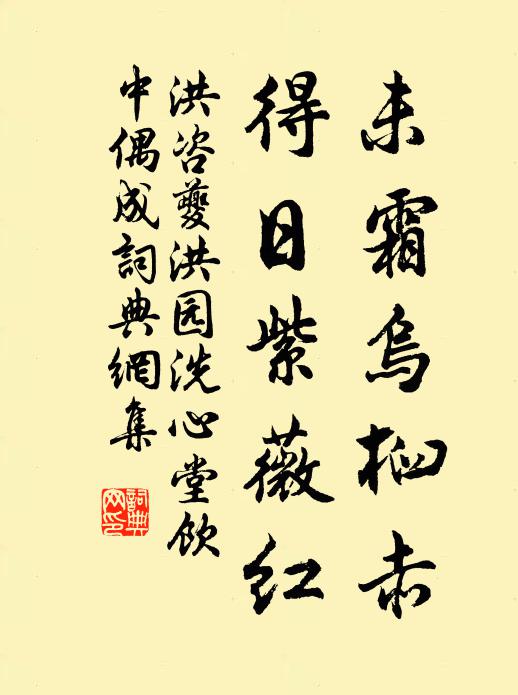 未霜乌桕赤
得日紫薇红
洪咨夔洪园洗心堂饮
中偶成詞典網集
詞典網印